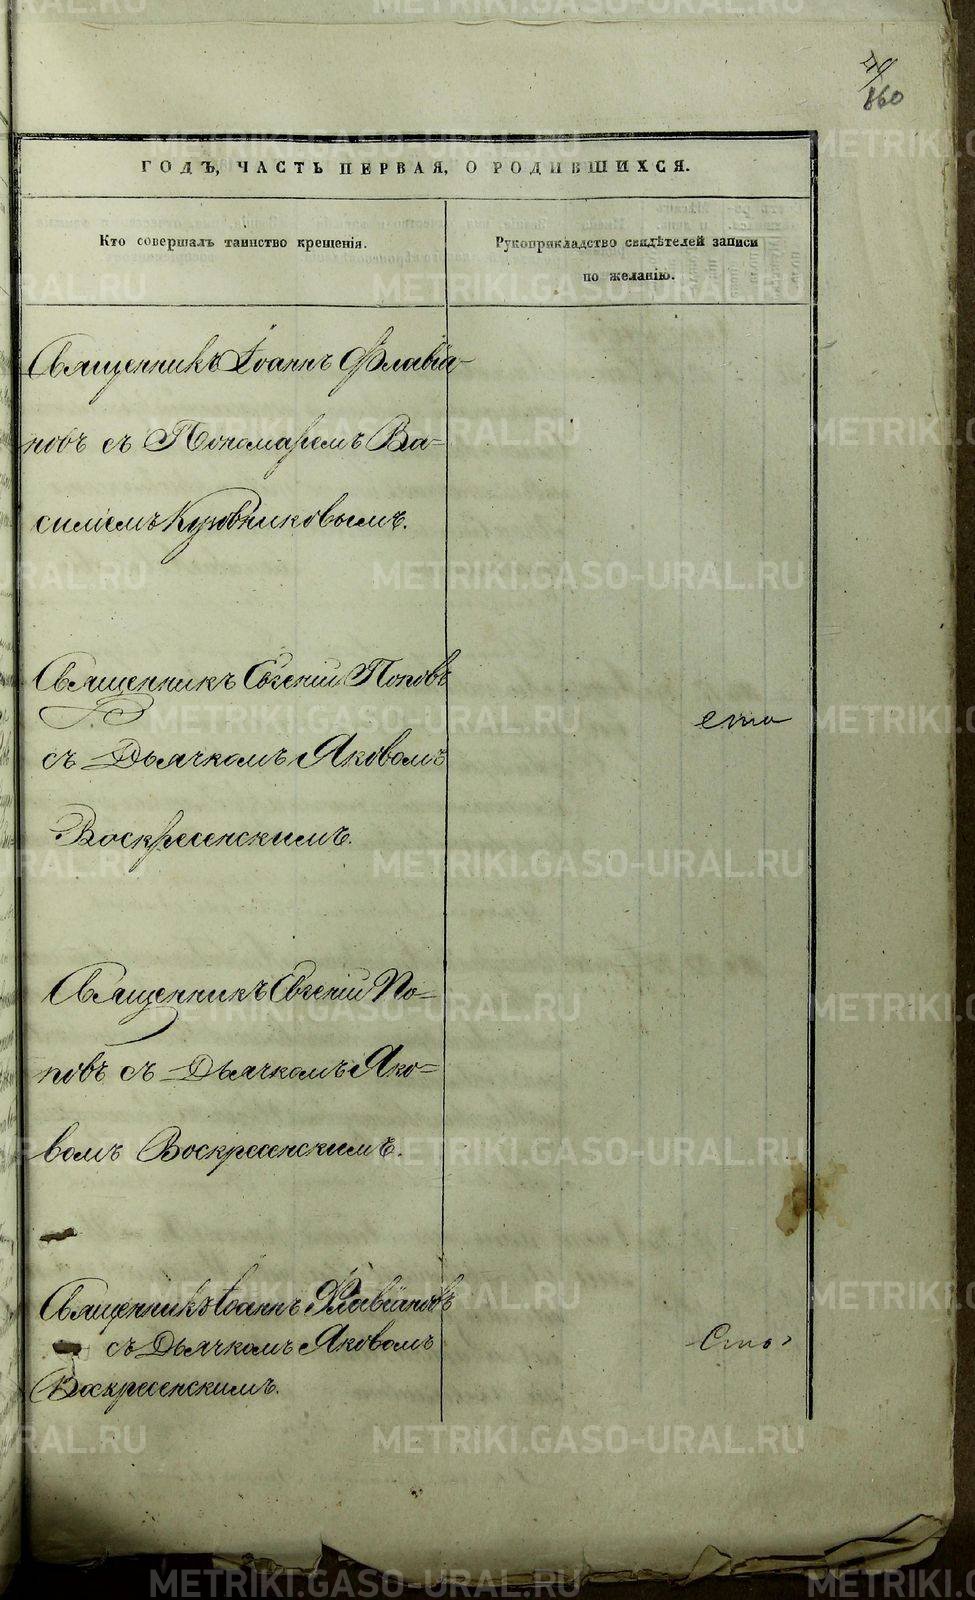 860
ГОДЪ, ЧАСТЬ ПЕРВАЯ, О РОДИВШИХСЯ.
Кто совершалъ таинство крещенія.
Рукоприкладство свидѣтелей записи
по желанію.
Священникъ Іоаннъ Флавіа-
новъ съ Пономаремъ Ва-
силіемъ Кузовниковымъ.
Священникъ Евгеній Поповъ
съ Дьячкомъ Яковомъ
Воскресенскимъ.
Священникъ Евгеній По-
повъ съ Дьячкомъ Яко-
вомъ Воскресенскимъ.
Священникъ Іоаннъ Флавіановъ
съ Дьячкомъ Яковомъ
Воскресенскимъ.
METRIKI.GASO-URAL.RU